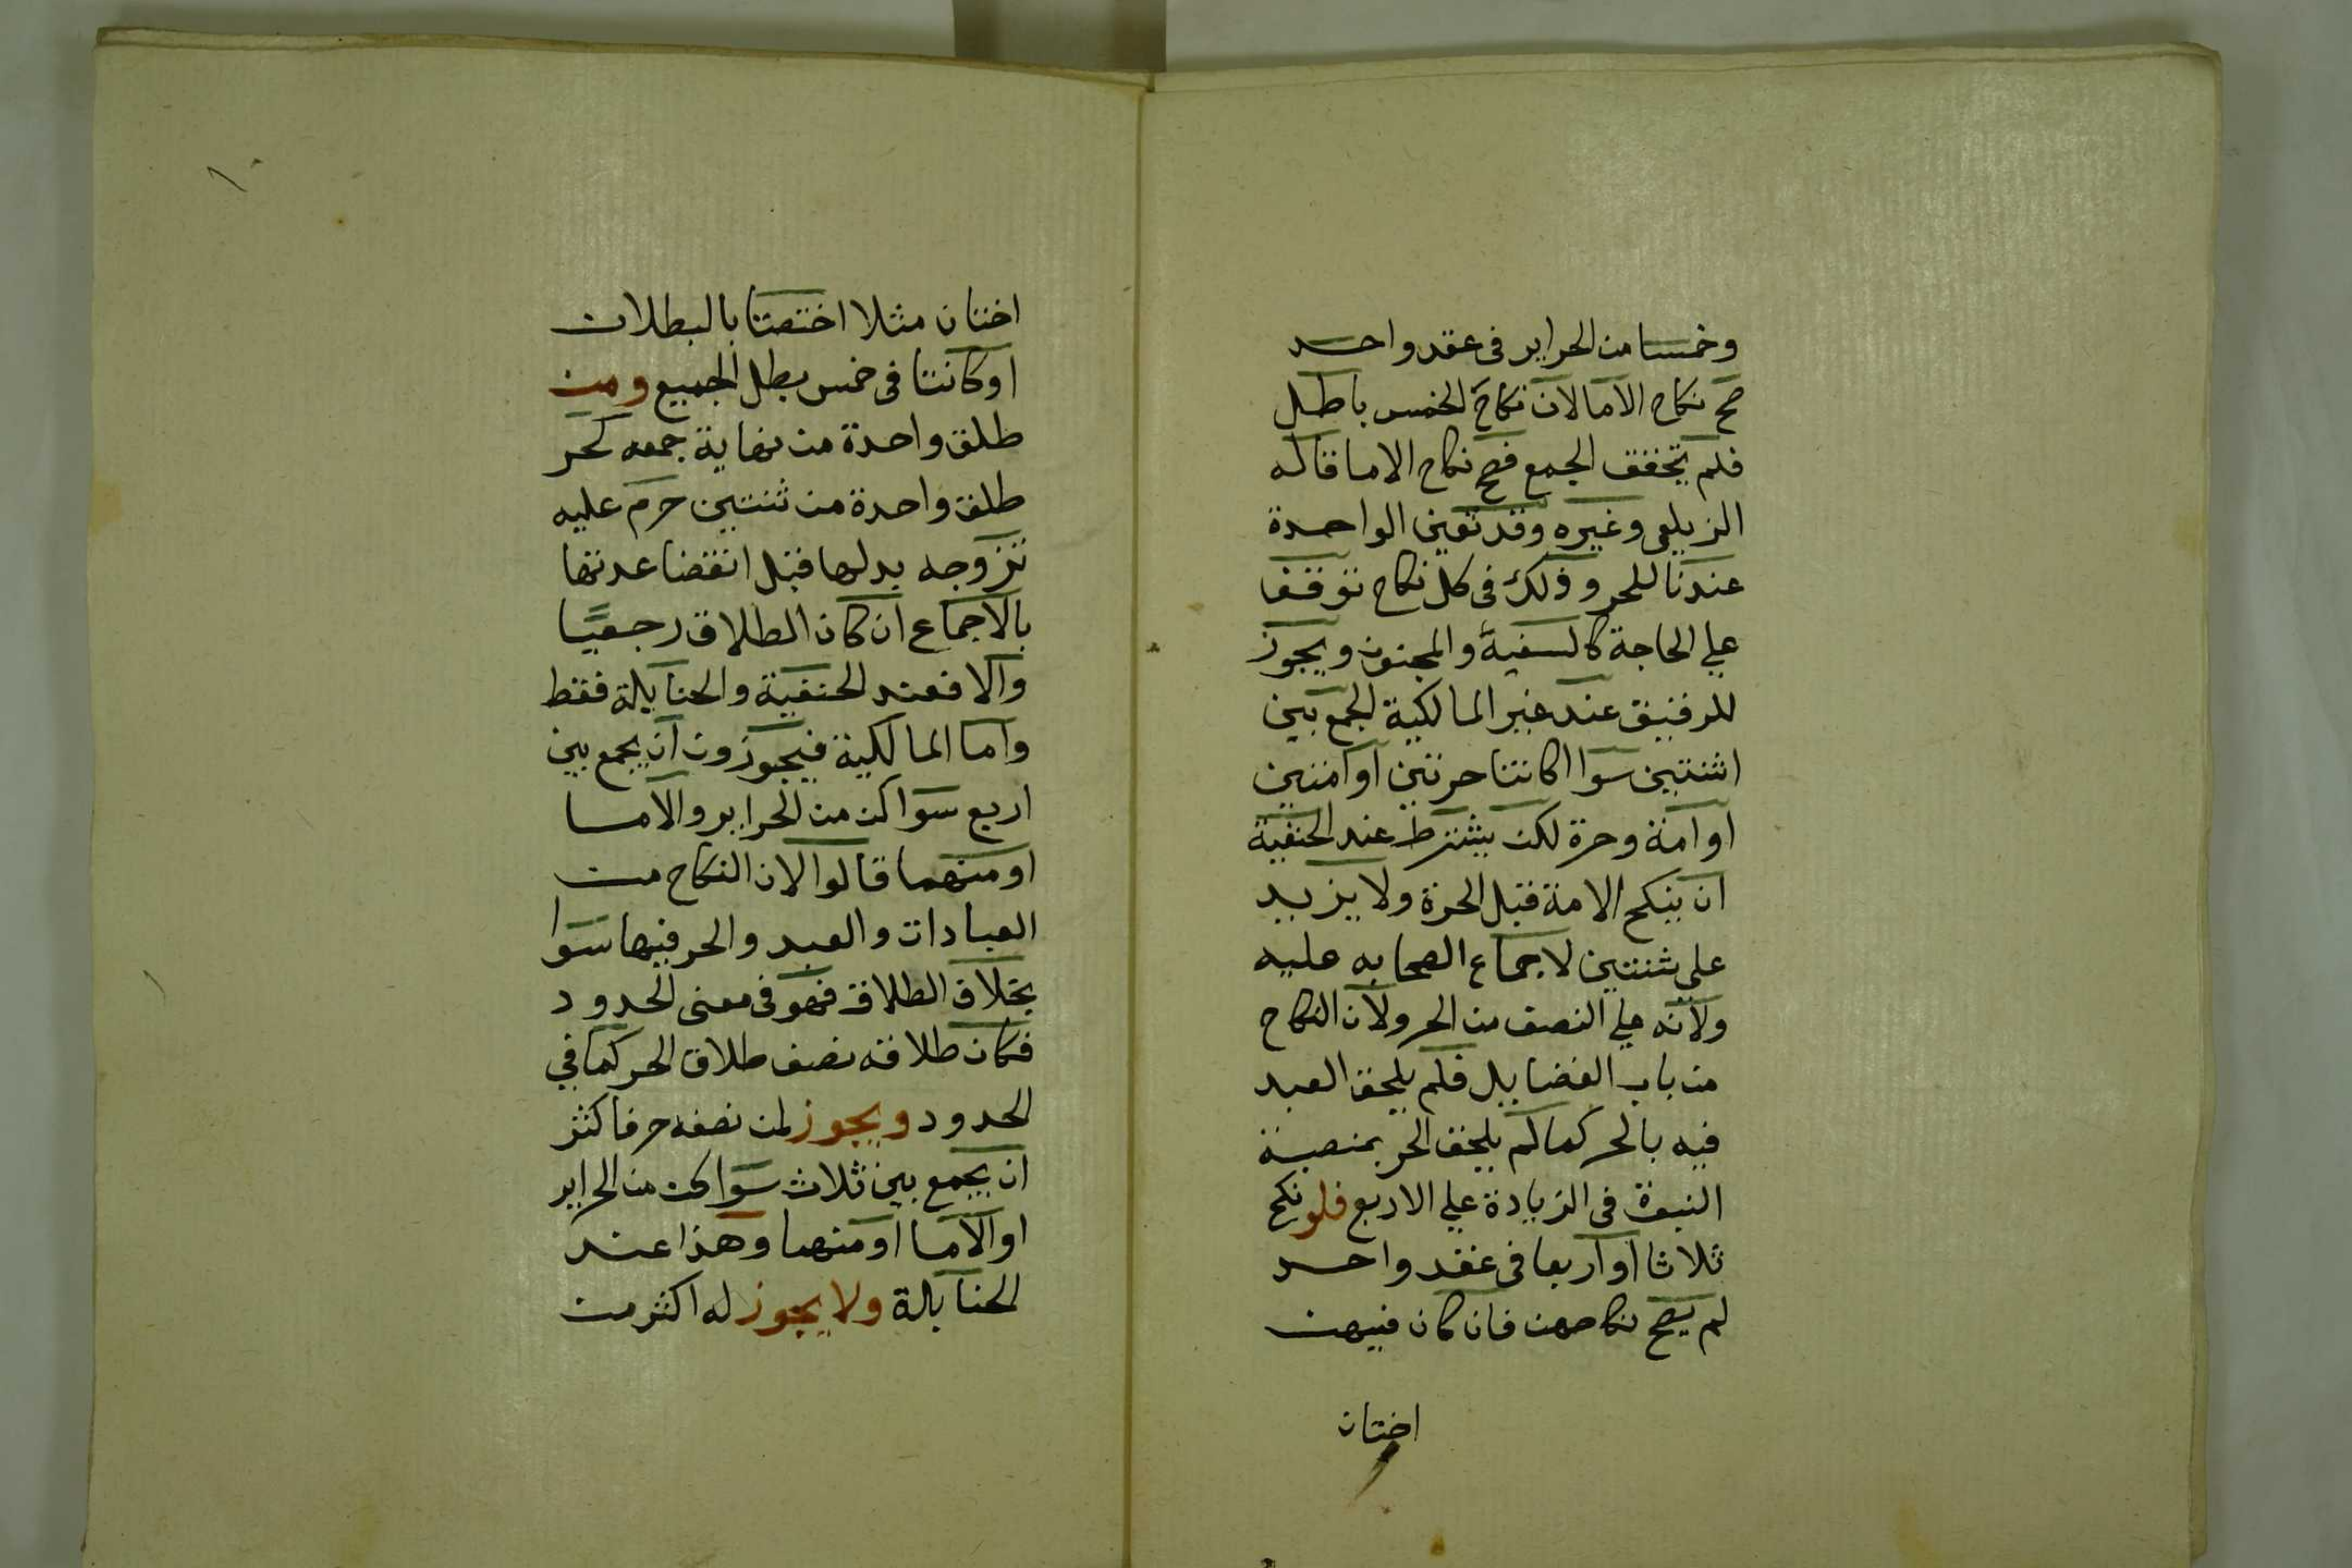 وخمسا من الحراير فى عقد واحد
صح نكاح الاما لان نكاح الخمس باطل
فلم يتحقق الجمع فصح نكاح الاما قاله
الزيلعى وغيره وقد تتعين الواحدة
عندنا للحر وذلك فى كل نكاح توقف
علي الحاجة كالسفيه والمجنون ويجوز
للرقيق عند غير المالكية الجمع بين
اثنتين سوا اكانتا حرتين او امتين
او امة وحرة لكن يشترط عند الحنفية
ان ينكح الامة قبل الحرة ولا يزيد
على ثنتين لاجماع الصحابه عليه
ولانه علي النصف من الحر ولان النكاح
من باب الفضايل فلم يلحق العبد
فيه بالحر كما لم يلحق الحر بمنصبة
النبوة فى الزيادة علي الاربع فلو نكح
ثلاثا او اربعا فى عقد واحد
لم يصح نكاحهن فان كان فيهن
اختان
١٠
اختان مثلا اختصتا بالبطلان
او كانتا فى خمس بطل الجميع ومن
طلق واحدة من نهاية جمعه كحر
طلق واحدة من ثنتين حرم عليه
تزوجه بدلها قبل انقضا عدتها
بالاجماع ان كان الطلاق رجعيًا
والا فعند الحنفية والحنابلة فقط
واما المالكية فيجوزون ان يجمع بين
اربع سوا كن من الحراير والاما
او منهما قالوا لان النكاح من
العبادات والعبد والحر فيها سوا
بخلاف الطلاق فهو فى معنى الحدود
فكان طلاقه نصف طلاق الحر كما في
الحدود ويجوز لمن نصفه حر فاكثر
ان يجمع بين ثلاث سوا كن من الحراير
او الاما او منهما وهذا عند
الحنابلة ولا يجوز له اكثر من